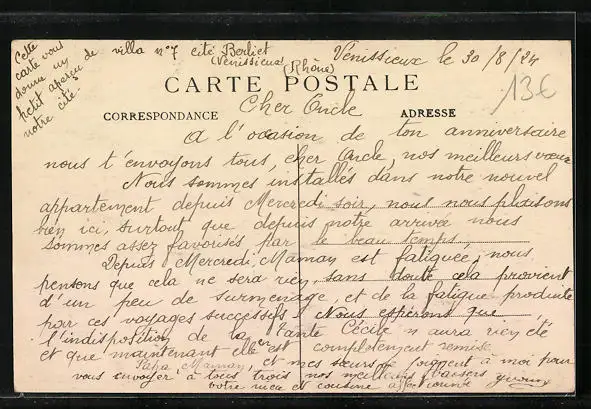 Cette
carte vous
donne un
petit aperçu
de
notre cité.
villa n°7 cité Berliet
(Vénissieux (Rhône)
Vénissieux le 30/8/24
CARTE POSTALE
13€
CORRESPONDANCE
ADRESSE
Cher Oncle
A l'occasion de ton anniversaire
nous t'envoyons tous, cher Oncle, nos meilleurs vœux
Nous sommes installés dans notre nouvel
appartement depuis Mercredi soir, nous nous plaisons
bien ici, surtout que depuis notre arrivée nous
sommes assez favorisés par le beau temps,
Depuis Mercredi Maman est fatiguée, nous
pensons que cela ne sera rien, sans doute cela provient
d'un peu de surmenage, et de la fatigue produite
par ces voyages successifs. Nous espérons que
l'indisposition de la Tante Cécile n'aura rien été
et que maintenant elle en est complètement remise
Papa, Maman, et mes sœurs se joignent à moi pour
vous envoyer à tous trois nos meilleurs baisers
votre nièce et cousine affectionnée